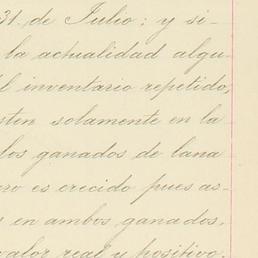 31. de Julio; y si-
la actualidad algu-
el inventario repetido,
sten solamente en la
los ganados de lana
ero es crecido pues as-
en ambos ganados,
valor real y positivo.